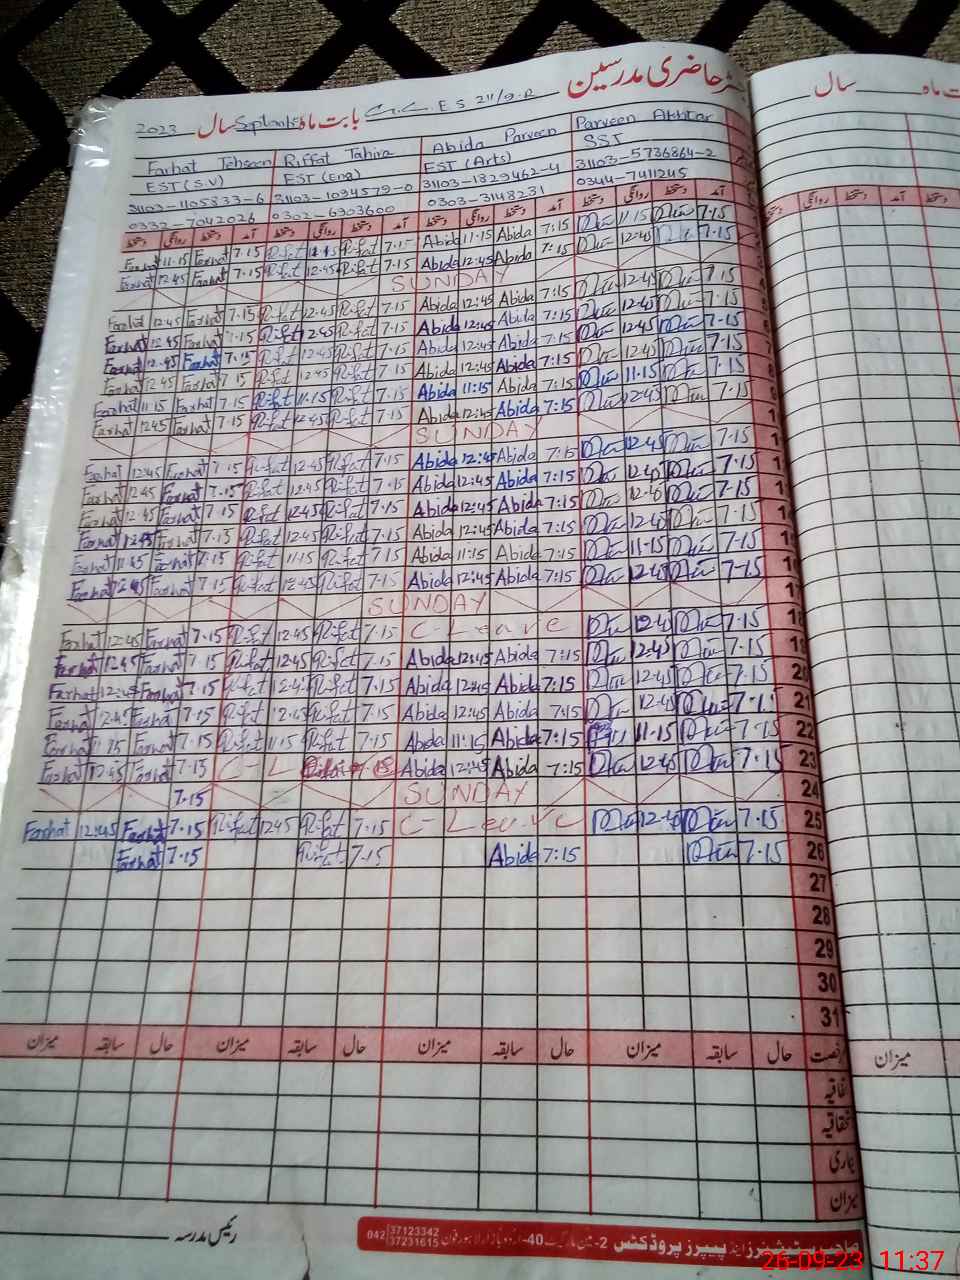 حاضری مدرسین
G.G. E S 211/9.R بابت ماہ September سال 2023
Parveen Akhtar
SST
31103-5736864-2
0344-7411245
Abida Parveen
EST (Arts)
31103-1829462-4
0303-3148231
Riffat Tahira
EST (Eng)
31103-1094579-0
0302-6303600
Farhat Tehseen
EST (S.V)
31103-1105833-6
0332-7042026
آمد دستخط روانگی دستخط آمد دستخط روانگی دستخط آمد دستخط روانگی دستخط آمد دستخط روانگی دستخط
Farhat 11.15 Farhat 7.15 Rifat Rifat 7.15 Abida 11.15 Abida 7:15 11.15 7.15
Farhat 12.45 Farhat 7.15 Rifat 12.45 Rifat 7.15 Abida 12:45 Abida 7.15 12.45 7.15
SUNDAY
Farhat 12.45 Farhat 7.15 Rifat 12.45 Rifat 7.15 Abida 12:45 Abida 7:15 12.45 7.15
Farhat 12.45 Farhat 7.15 Rifat 12.45 Rifat 7.15 Abida 12:45 Abida 7:15 12.45 7.15
Farhat 12.45 Farhat 7.15 Rifat 12.45 Rifat 7.15 Abida 12:45 Abida 7:15 12.45 7.15
Farhat 12.45 Farhat 7.15 Rifat 12.45 Rifat 7.15 Abida 12:45 Abida 7:15 12.45 7.15
Farhat 11.15 Farhat 7.15 Rifat 11.15 Rifat 7.15 Abida 11:15 Abida 7:15 11.15 7.15
Farhat 12.45 Farhat 7.15 Rifat 12.45 Rifat 7.15 Abida 12:45 Abida 7:15 12.45 7.15
SUNDAY
Farhat 12.45 Farhat 7.15 Rifat 12.45 Rifat 7.15 Abida 12:45 Abida 7:15 12.45 7.15
Farhat 12.45 Farhat 7.15 Rifat 12.45 Rifat 7.15 Abida 12:45 Abida 7:15 12.45 7.15
Farhat 12.45 Farhat 7.15 Rifat 12.45 Rifat 7.15 Abida 12:45 Abida 7:15 7.15
Farhat 12.45 Farhat 7.15 Rifat 12.45 Rifat 7.15 Abida 12:45 Abida 7:15 12.45 7.15
Farhat Farhat 7.15 Rifat 11.15 Rifat 7.15 Abida 11:15 Abida 7:15 11.15 7.15
Farhat 12.45 Farhat 7.15 Rifat 12.45 Rifat 7.15 Abida 12:45 Abida 7:15 12.45 7.15
SUNDAY
Farhat 12.45 Farhat 7.15 Rifat 12.45 Rifat 7.15 C-Leave 12.45 7.15 18
Farhat 12.45 Farhat 7.15 Rifat 12.45 Rifat 7.15 Abida 12:45 Abida 7:15 12.45 7.15 19
Farhat 12.45 Farhat 7.15 Rifat 12.45 Rifat 7.15 Abida 12:45 Abida 7:15 12.45 7.15 20
Farhat 12.45 Farhat 7.15 Rifat 12.45 Rifat 7.15 Abida 12:45 Abida 7:15 12.45 7.15 21
Farhat 11.15 Farhat 7.15 Rifat 11.15 Rifat 7.15 Abida 11:15 Abida 7:15 11.15 7.15 22
Farhat 12.45 Farhat 7.15 C-L Abida 12:45 Abida 7:15 12.45 7.15 23
7.15 SUNDAY 24
Farhat 12.45 Farhat 7.15 Rifat 12.45 Rifat 7.15 C-Leave 12.45 7.15 25
Farhat 7.15 Rifat 7.15 Abida 7:15 7.15 26
27
28
29
30
31
رخصت حال سابقہ میزان حال سابقہ میزان حال سابقہ میزان حال سابقہ میزان
اتفاقیہ
استحقاقیہ
بیماری
میزان
رئیس مدرسہ
سٹیشنرز اینڈ پیپرز پروڈکٹس 2-مین مارکیٹ 40-اردو بازار لاہور فون 042 37123342 37231615
سال
ماہ
آمد دستخط روانگی دستخط
میزان
26-09-23 11:37